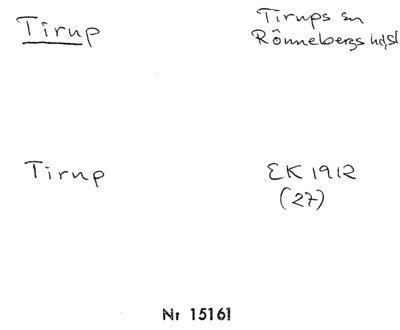 Tirup
Tirups sn
Rönnebergs hd, Sk
Tirup
EK 1912
(27)
Nr 15161